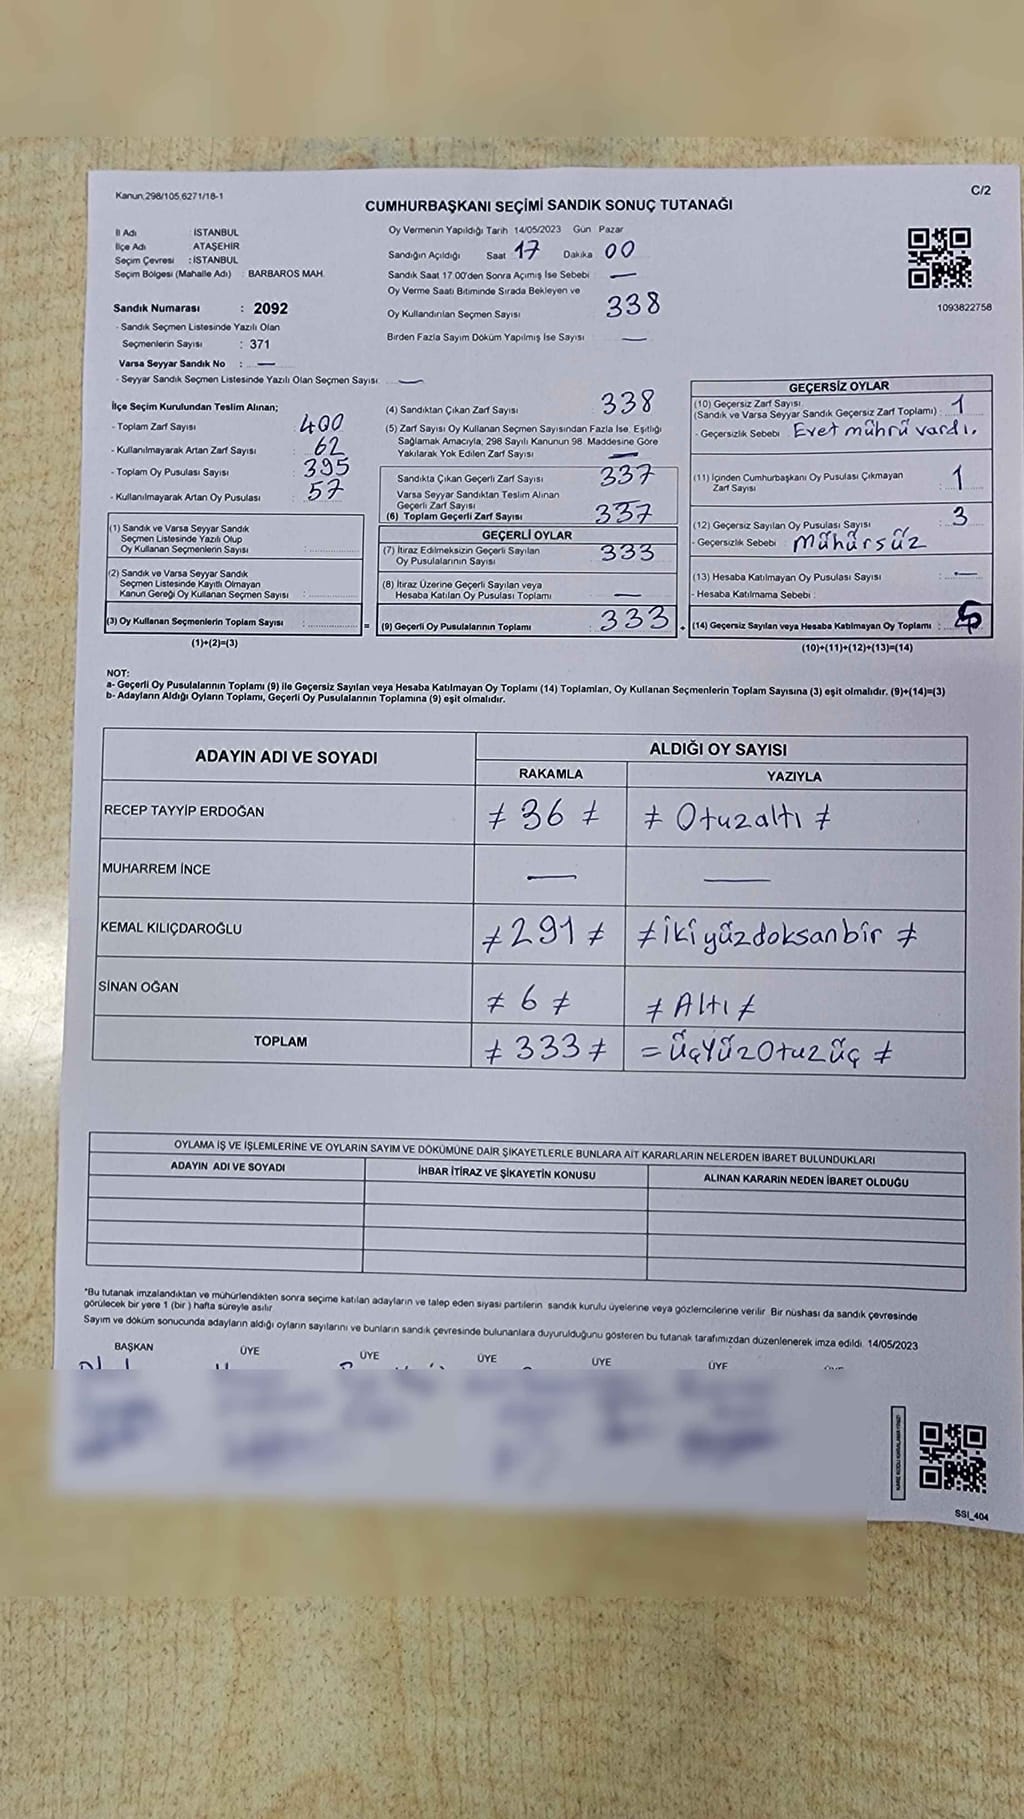 Kanun,298/105,6271/18-1
C/2
CUMHURBAŞKANI SEÇİMİ SANDIK SONUÇ TUTANAĞI
İl Adı : İSTANBUL
İlçe Adı : ATAŞEHİR
Seçim Çevresi : İSTANBUL
Seçim Bölgesi (Mahalle Adı) : BARBAROS MAH.
Sandık Numarası : 2092
- Sandık Seçmen Listesinde Yazılı Olan
Seçmenlerin Sayısı : 371
Varsa Seyyar Sandık No : —
- Seyyar Sandık Seçmen Listesinde Yazılı Olan Seçmen Sayısı: —
Oy Vermenin Yapıldığı Tarih 14/05/2023 Gün Pazar
Sandığın Açıldığı Saat 17 Dakika 00
Sandık Saat 17 00'den Sonra Açımış İse Sebebi —
Oy Verme Saati Bitiminde Sırada Bekleyen ve
Oy Kullandırılan Seçmen Sayısı 338
Birden Fazla Sayım Döküm Yapılmış İse Sayısı —
1093822758
İlçe Seçim Kurulundan Teslim Alınan;
- Toplam Zarf Sayısı : 400
- Kullanılmayarak Artan Zarf Sayısı : 62
- Toplam Oy Pusulası Sayısı : 395
- Kullanılmayarak Artan Oy Pusulası : 57
(1) Sandık ve Varsa Seyyar Sandık
Seçmen Listesinde Yazılı Olup
Oy Kullanan Seçmenlerin Sayısı :
(2) Sandık ve Varsa Seyyar Sandık
Seçmen Listesinde Kayıtlı Olmayan
Kanun Gereği Oy Kullanan Seçmen Sayısı :
(3) Oy Kullanan Seçmenlerin Toplam Sayısı : =
(1)+(2)=(3)
(4) Sandıktan Çıkan Zarf Sayısı 338
(5) Zarf Sayısı Oy Kullanan Seçmen Sayısından Fazla İse, Eşitliği
Sağlamak Amacıyla, 298 Sayılı Kanunun 98. Maddesine Göre
Yakılarak Yok Edilen Zarf Sayısı —
Sandıkta Çıkan Geçerli Zarf Sayısı 337
Varsa Seyyar Sandıktan Teslim Alınan
Geçerli Zarf Sayısı
(6) Toplam Geçerli Zarf Sayısı 337
GEÇERLİ OYLAR
(7) İtiraz Edilmeksizin Geçerli Sayılan
Oy Pusulalarının Sayısı 333
(8) İtiraz Üzerine Geçerli Sayılan veya
Hesaba Katılan Oy Pusulası Toplamı —
(9) Geçerli Oy Pusulalarının Toplamı 333 +
GEÇERSİZ OYLAR
(10) Geçersiz Zarf Sayısı
(Sandık ve Varsa Seyyar Sandık Geçersiz Zarf Toplamı) : 1
- Geçersizlik Sebebi : Evet mührü vardı.
(11) İçinden Cumhurbaşkanı Oy Pusulası Çıkmayan
Zarf Sayısı 1
(12) Geçersiz Sayılan Oy Pusulası Sayısı 3
- Geçersizlik Sebebi mühürsüz
(13) Hesaba Katılmayan Oy Pusulası Sayısı —
- Hesaba Katılmama Sebebi :
(14) Geçersiz Sayılan veya Hesaba Katılmayan Oy Toplamı : 5
(10)+(11)+(12)+(13)=(14)
NOT:
a- Geçerli Oy Pusulalarının Toplamı (9) ile Geçersiz Sayılan veya Hesaba Katılmayan Oy Toplamı (14) Toplamları, Oy Kullanan Seçmenlerin Toplam Sayısına (3) eşit olmalıdır. (9)+(14)=(3)
b- Adayların Aldığı Oyların Toplamı, Geçerli Oy Pusulalarının Toplamına (9) eşit olmalıdır.
ADAYIN ADI VE SOYADI ALDIĞI OY SAYISI
RAKAMLA YAZIYLA
RECEP TAYYİP ERDOĞAN ≠ 36 ≠ ≠ Otuzaltı ≠
MUHARREM İNCE — —
KEMAL KILIÇDAROĞLU ≠ 291 ≠ ≠ ikiyüzdoksanbir ≠
SİNAN OĞAN ≠ 6 ≠ ≠ Altı ≠
TOPLAM ≠ 333 ≠ = ÜçYüzOtuzüç ≠
OYLAMA İŞ VE İŞLEMLERİNE VE OYLARIN SAYIM VE DÖKÜMÜNE DAİR ŞİKAYETLERLE BUNLARA AİT KARARLARIN NELERDEN İBARET BULUNDUKLARI
ADAYIN ADI VE SOYADI İHBAR İTİRAZ VE ŞİKAYETİN KONUSU ALINAN KARARIN NEDEN İBARET OLDUĞU
*Bu tutanak imzalandıktan ve mühürlendikten sonra seçime katılan adayların ve talep eden siyasi partilerin sandık kurulu üyelerine veya gözlemcilerine verilir Bir nüshası da sandık çevresinde
görülecek bir yere 1 (bir ) hafta süreyle asılır
Sayım ve döküm sonucunda adayların aldığı oyların sayılarını ve bunların sandık çevresinde bulunanlara duyurulduğunu gösteren bu tutanak tarafımızdan düzenlenerek imza edildi. 14/05/2023
BAŞKAN ÜYE ÜYE ÜYE ÜYE ÜYE
SSI_404